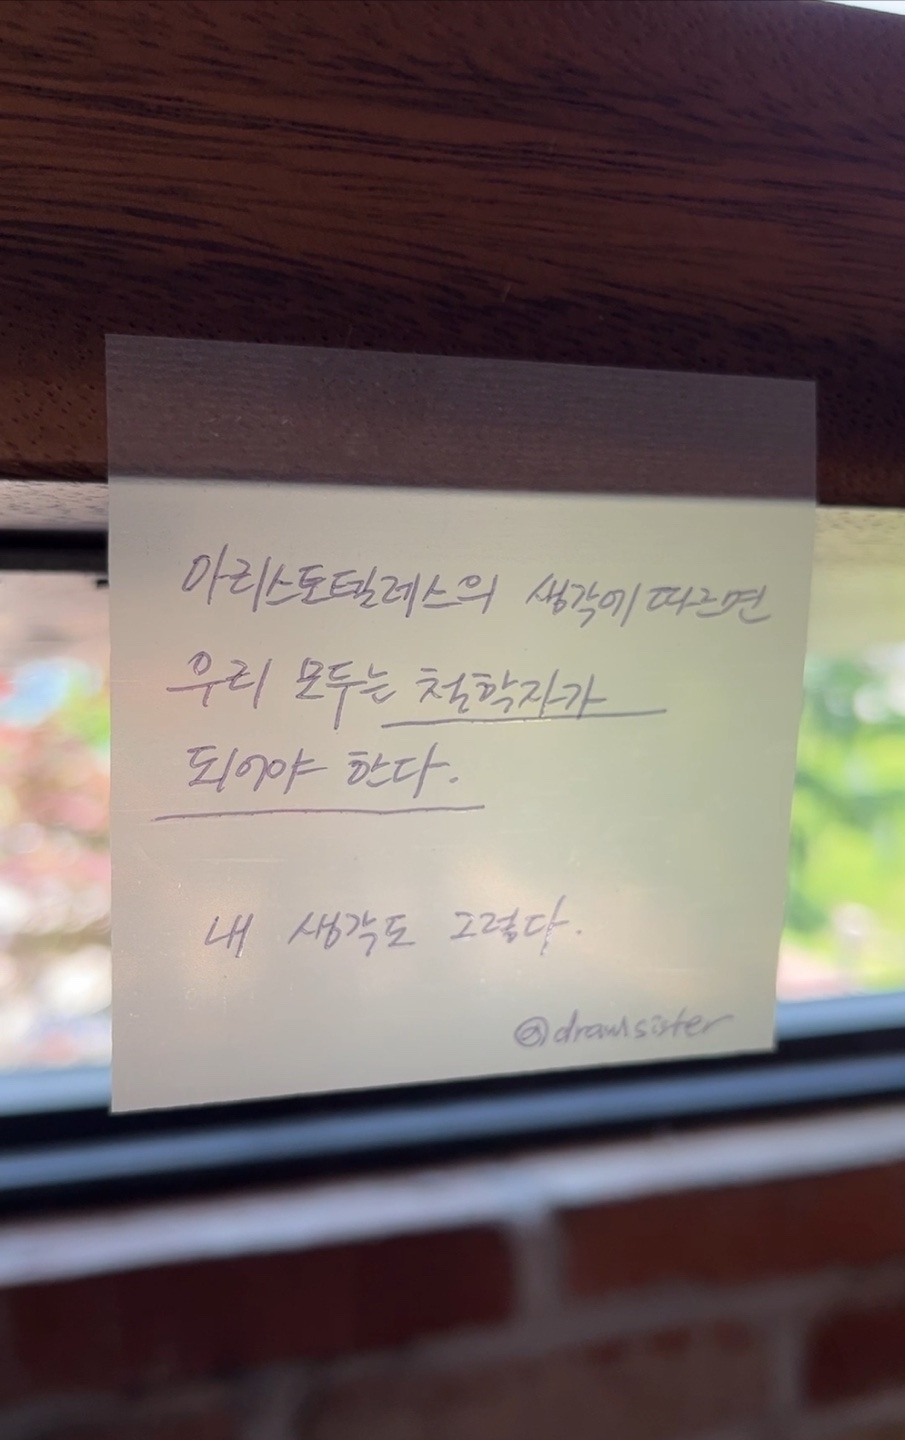 아리스토텔레스의 생각에 따르면
우리 모두는 철학자가
되어야 한다.
내 생각도 그렇다.
@drawlsister